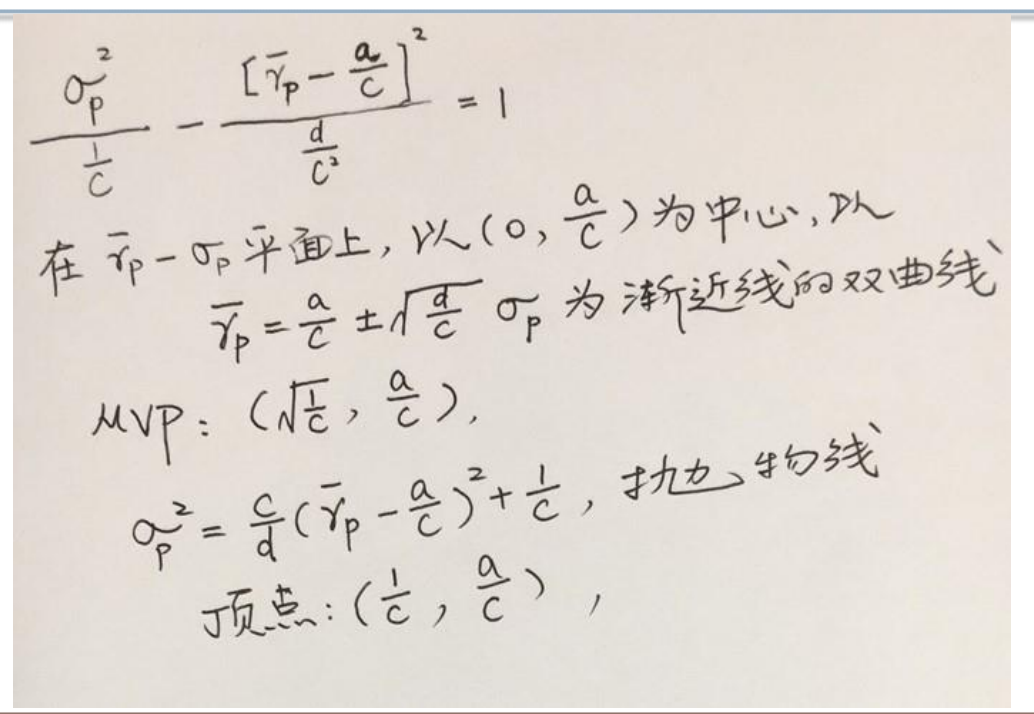 σ_p² / (1/c) − [r̄_p − a/c]² / (d/c²) = 1
在 r̄_p − σ_p 平面上, 以(0, a/c)为中心, 以
r̄_p = a/c ± √(d/c) σ_p 为渐近线的双曲线
MVP: (√(1/c), a/c),
σ_p² = c/d (r̄_p − a/c)² + 1/c, 抛物线
顶点: (1/c, a/c),